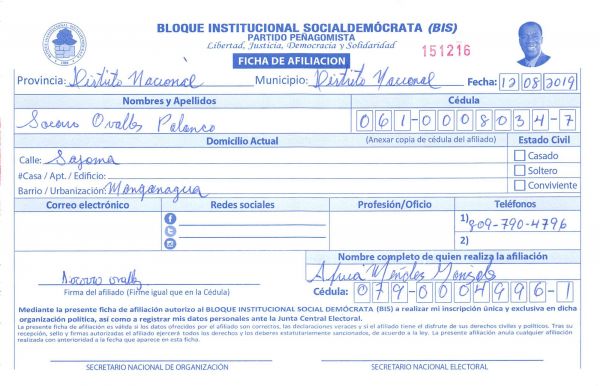 BLOQUE INSTITUCIONAL SOCIALDEMÓCRATA (BIS)
PARTIDO PEÑAGOMISTA
Libertad, Justicia, Democracia y Solidaridad
151216
FICHA DE AFILIACION
Provincia: Distrito Nacional Municipio: Distrito Nacional Fecha: 12 08 2019
Nombres y Apellidos Cédula
Socorro Ovalles Polanco 061-0008034-7
Domicilio Actual (Anexar copia de cédula del afiliado) Estado Civil
Calle: Sajoma Casado
#Casa / Apt. / Edificio: Soltero
Barrio / Urbanización: Manganagua Conviviente
Correo electrónico Redes sociales Profesión/Oficio Teléfonos
1) 809-790-4796
2)
Nombre completo de quien realiza la afiliación
Socorro Ovalles Méndez
Firma del afiliado (Firme igual que en la Cédula) Cédula: 079-0004996-1
Mediante la presente ficha de afiliación autorizo al BLOQUE INSTITUCIONAL SOCIAL DEMÓCRATA (BIS) a realizar mi inscripción única y exclusiva en dicha
organización política, así como a registrar mis datos personales ante la Junta Central Electoral.
La presente ficha de afiliación es válida si los datos ofrecidos por el afiliado son correctos, las declaraciones veraces y si el afiliado tiene el disfrute de sus derechos civiles y políticos. Tras su
recepción, sello y firmas autorizadas el afiliado ejercerá todos los derechos y los deberes estatutariamente sancionados, de acuerdo a la ley. La presente afiliación anula cualquier afiliación
realizada con anterioridad a la fecha que aparece en esta ficha.
SECRETARIO NACIONAL DE ORGANIZACIÓN SECRETARIO NACIONAL ELECTORAL